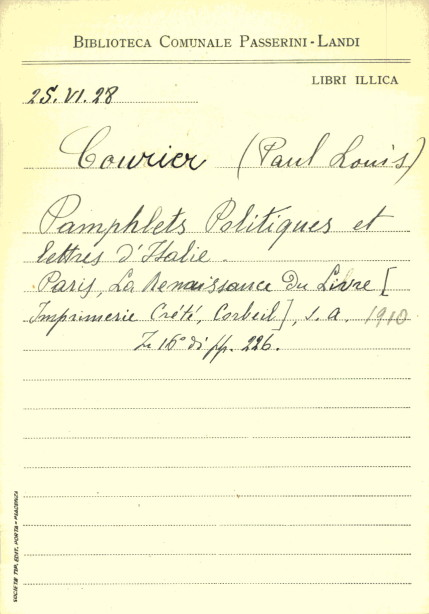 BIBLIOTECA COMUNALE PASSERINI-LANDI
LIBRI ILLICA
25.VI.28
Courier (Paul Louis)
Pamphlets Politiques et
lettres d'Italie.
Paris, La Renaissance du Livre [
Imprimerie Crété, Corbeil], s.a. 1910
In 16° di pp. 226.
SOCIETÀ TIP. EDIT. PORTA - PIACENZA